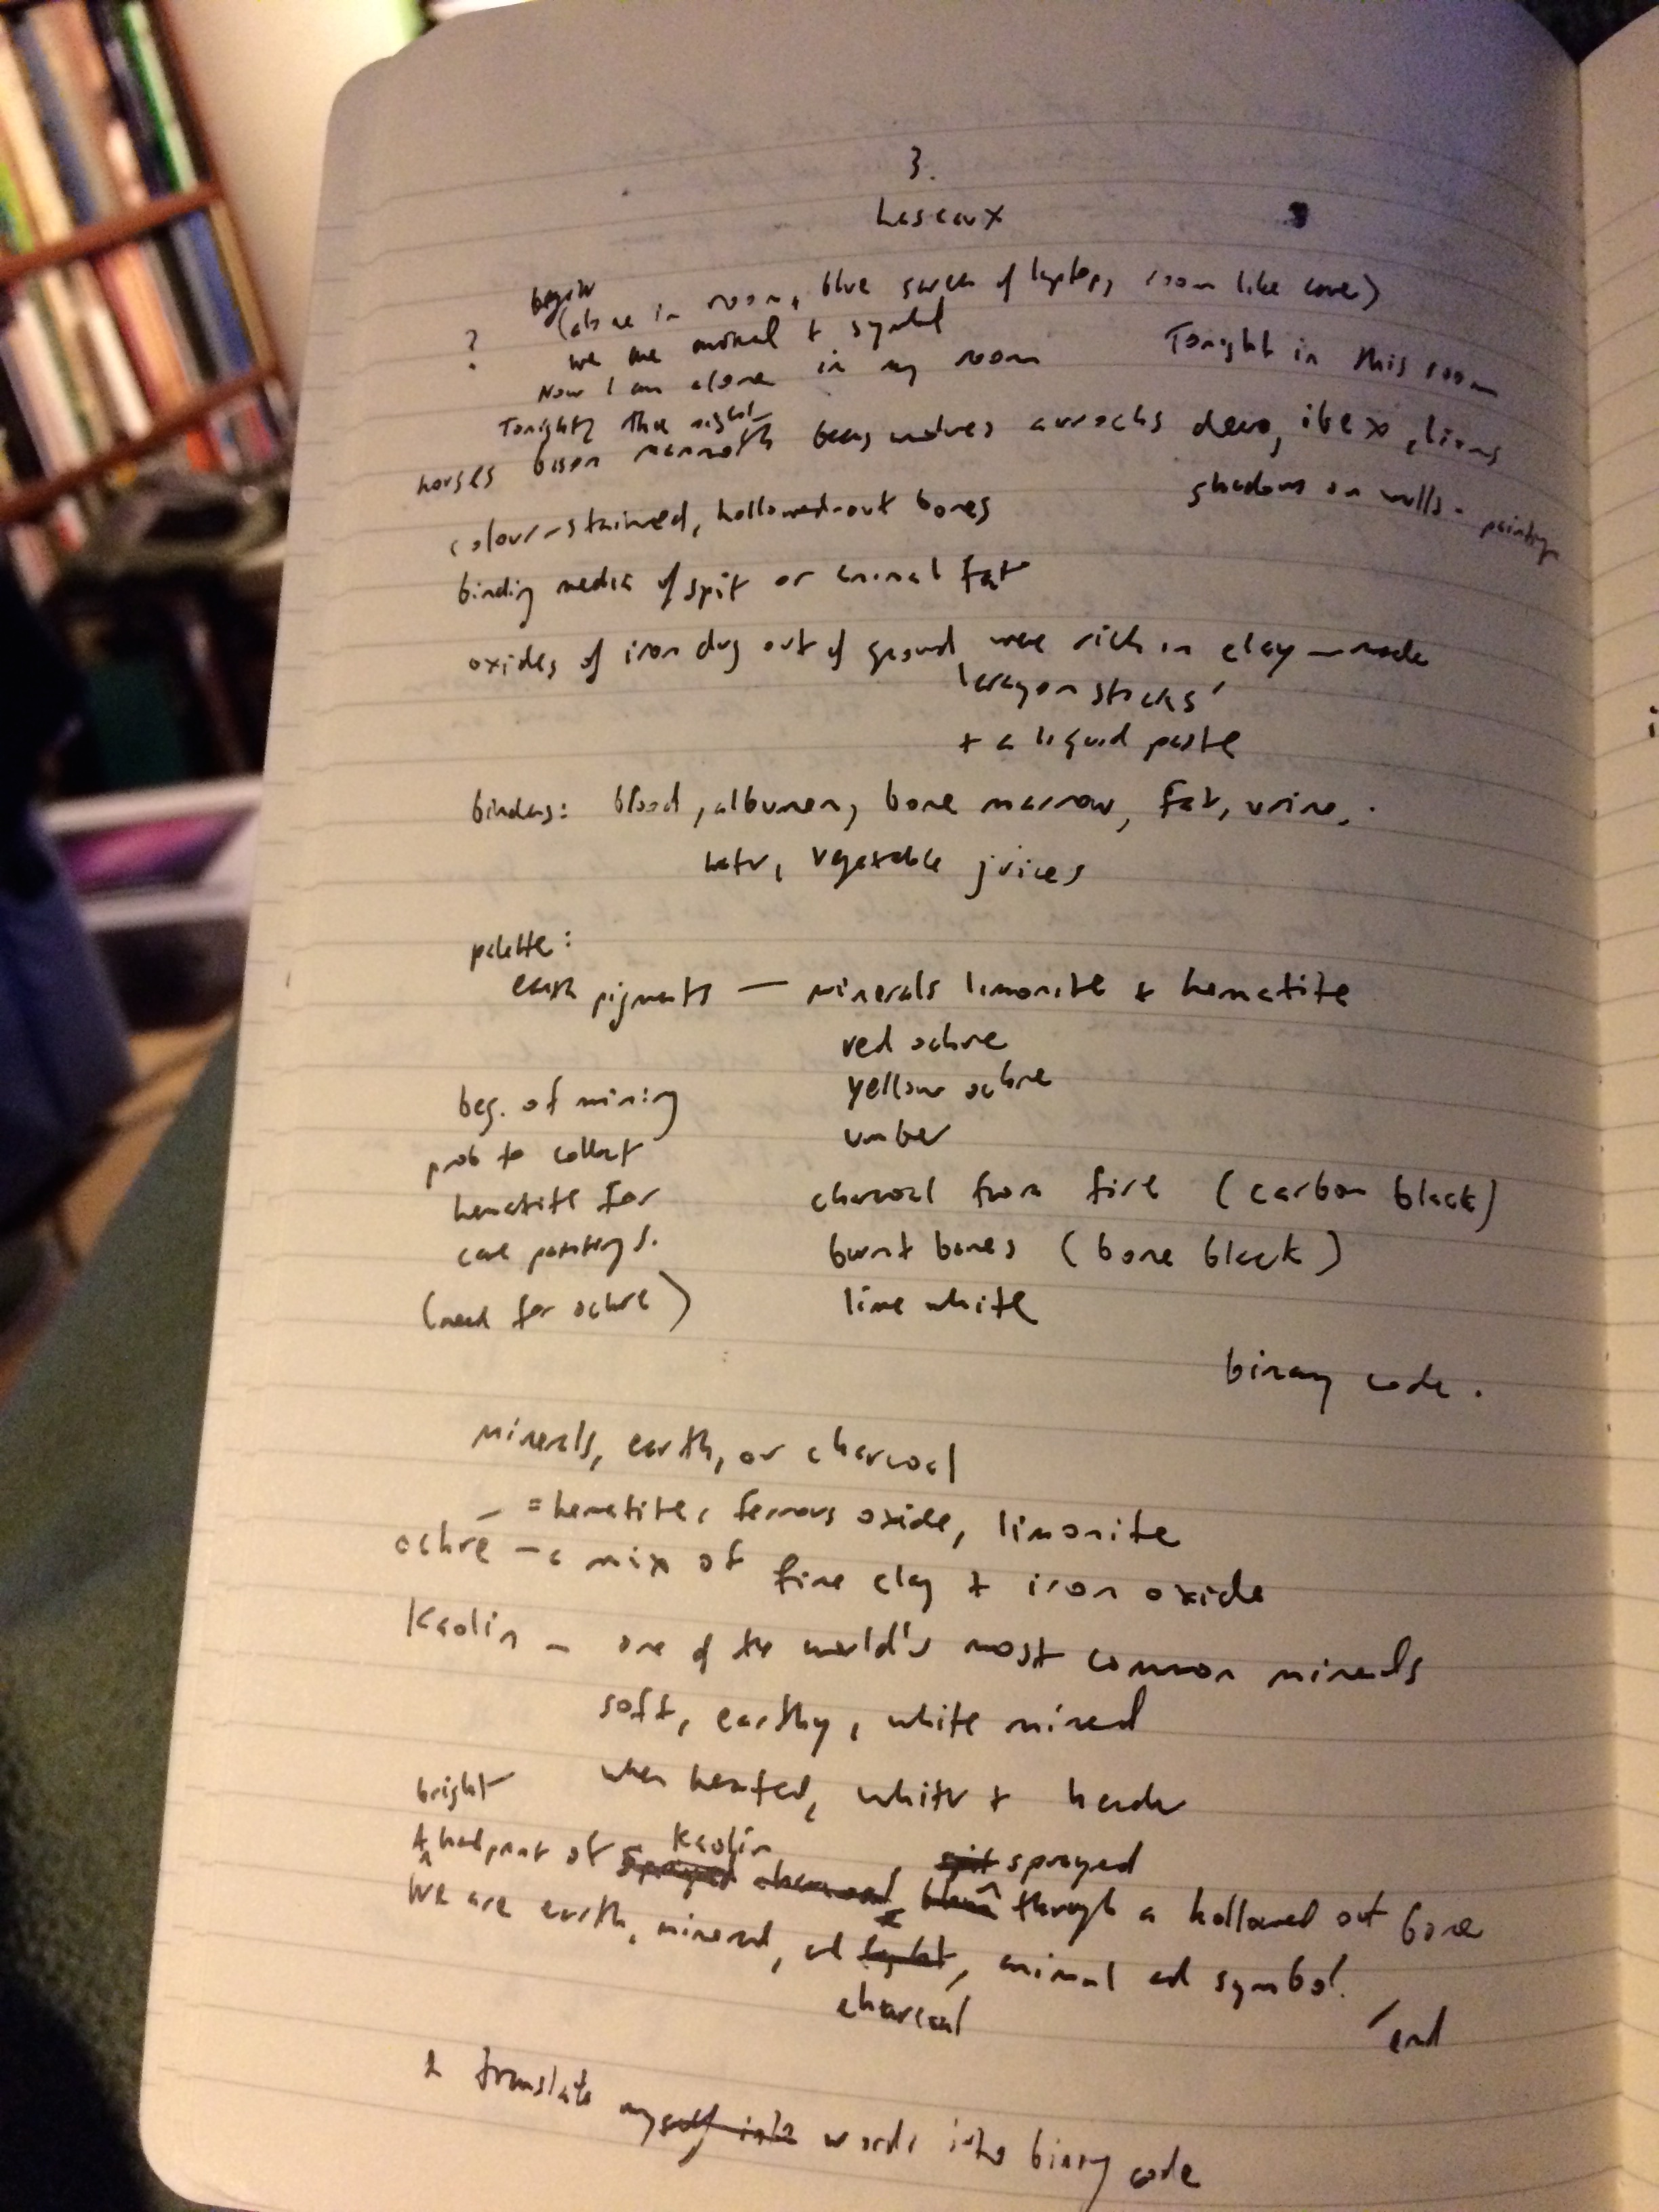 3.
Lascaux
begin
(alone in room, blue screen of laptop, room like cave)
? we are animal + symbol
Now I am alone in my room
Tonight in this room
Tonight, the night
horses bison mammoth bears wolves aurochs deer, ibex, lions
shadows on walls - paintings
colour-stained, hollowed-out bones
binding media of spit or animal fat
oxides of iron dug out of ground were rich in clay — made
'crayon sticks'
+ a liquid paste
binders: blood, albumen, bone marrow, fat, urine,
water, vegetable juices
palette:
earth pigments — minerals limonite + hematite
red ochre
yellow ochre
umber
charcoal from fire (carbon black)
burnt bones (bone black)
lime white
beg. of mining
prob to collect
hematite for
cave paintings.
(need for ochre)
binary code.
minerals, earth, or charcoal
= hematite, ferrous oxide, limonite
ochre - a mix of fine clay + iron oxide
Kaolin - one of the world's most common minerals
soft, earthy, white mineral
when heated, whiter + harder
bright
A handprint of sprayed charcoal Kaolin blown spit sprayed through a hollowed out bone
We are earth, mineral, and light, charcoal animal and symbol.
end
I translate myself into words into binary code